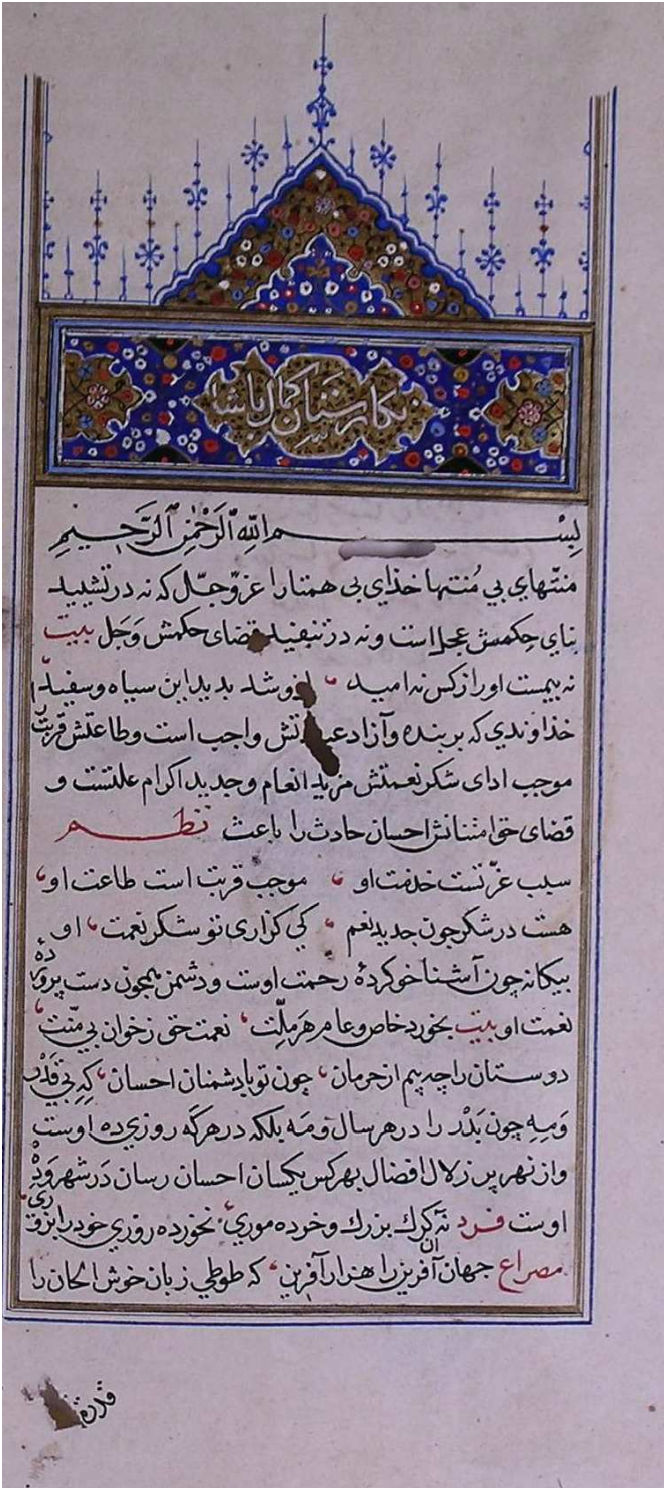 نكارستان كمال پاشا
بِسْم الله الرَّحْمٰنِ الرَّحِيمِ
منتهاي بي مُنتها خداي بی همتارا عزّوجّل كه نه در تشیید
بنای حِكمش عجلاست ونه در تنفید قضای حكمش وَجَل بیت
نه بیمست اورا ز كس نه امید شد بدید این سیاه وسفید
خداوندي كه بربنده وآزاد واجب است وطاعتش قربت
موجب ادای شكر نعمتش مزید انعام وجدید اكرام علتست و
قضای حق امتنانش احسان حادث را باعث نظم
سبب عزّتست خدمت او موجب قربت است طاعت او
هست در شكر چون جدید نعم كی كزاری تو شكر نعمت او
بیكانه چون آشنا خوكردۀ رحمت اوست ودشمن همچون دست پروردۀ
نعمت او بیت بخورد خاص وعام هر مِلّت نعمت حق ز خوان بی منّت
دوستان را چه بیم از حرمان چون تو با دشمنان احسان كِه بی قَدْر
وَمِه چون بَدْر را در هر سال ومَه بلكه در هر كَه روزی ده اوست
واز نهر پر زلال افضال بهر كس یكسان احسان رسان دَر شهر وَدْی
اوست فرد نه كرك بزرك وخرده موری نخورده روزی خود را بزوری
مصراع جهان آفرین را هزاران آفرین كه طوطي زبان خوش الحان را